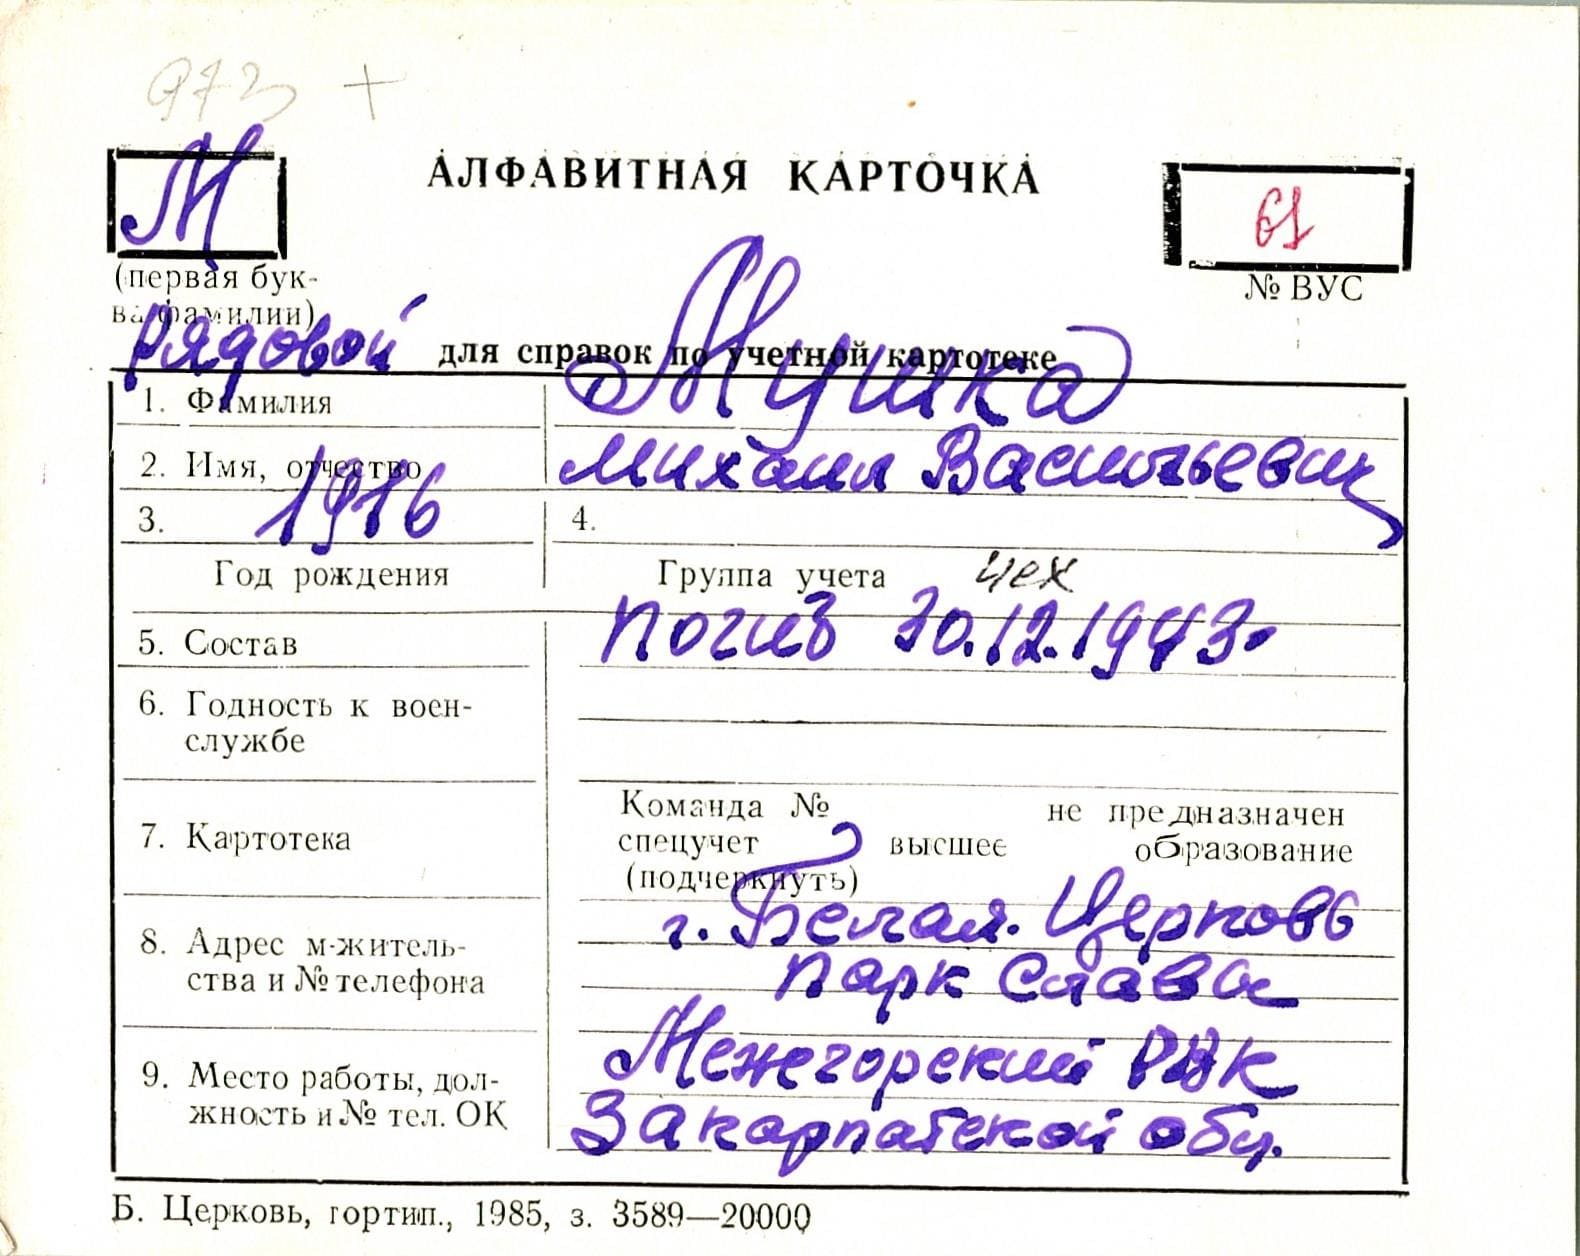 973 +
М
АЛФАВИТНАЯ КАРТОЧКА
61
(первая бук-
ва фамилии)
№ ВУС
рядовой
для справок по учетной картотеке
1. Фамилия Мушка
2. Имя, отчество Михаил Васильевич
3. 1916 4.
Год рождения Группа учета чех
5. Состав погиб 30.12.1943.
6. Годность к воен-
службе
7. Картотека
Команда № не предназначен
спецучет высшее образование
(подчеркнуть)
8. Адрес м-житель-
ства и № телефона
г. Белая. Церковь
парк Славы
9. Место работы, дол-
жность и № тел. ОК
Межегорский РВК
Закарпатской обл.
Б. Церковь, гортип., 1985, з. 3589—20000